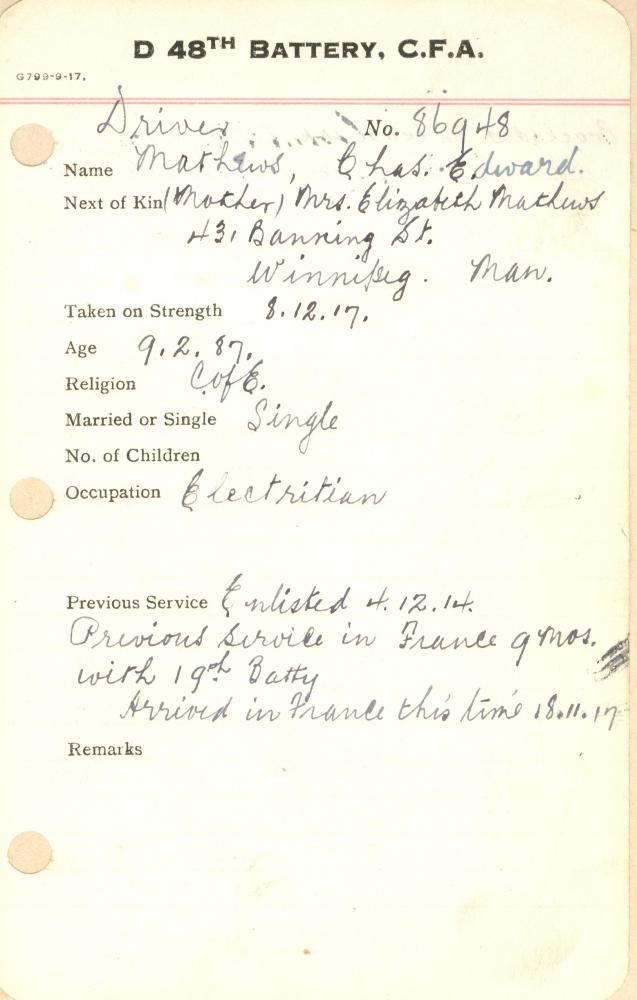 D 48TH BATTERY, C.F.A.
G799-9-17.
Driver No. 86948
Name Mathews, Chas. Edward.
Next of Kin (Mother) Mrs. Elizabeth Mathews
431 Banning St.
Winnipeg. Man.
Taken on Strength 8.12.17.
Age 9.2.87.
Religion C of E.
Married or Single Single
No. of Children
Occupation Electritian
Previous Service Enlisted 4.12.14.
Previous service in France 9 mos.
with 19th Batty
Arrived in France this time 18.11.17
Remarks